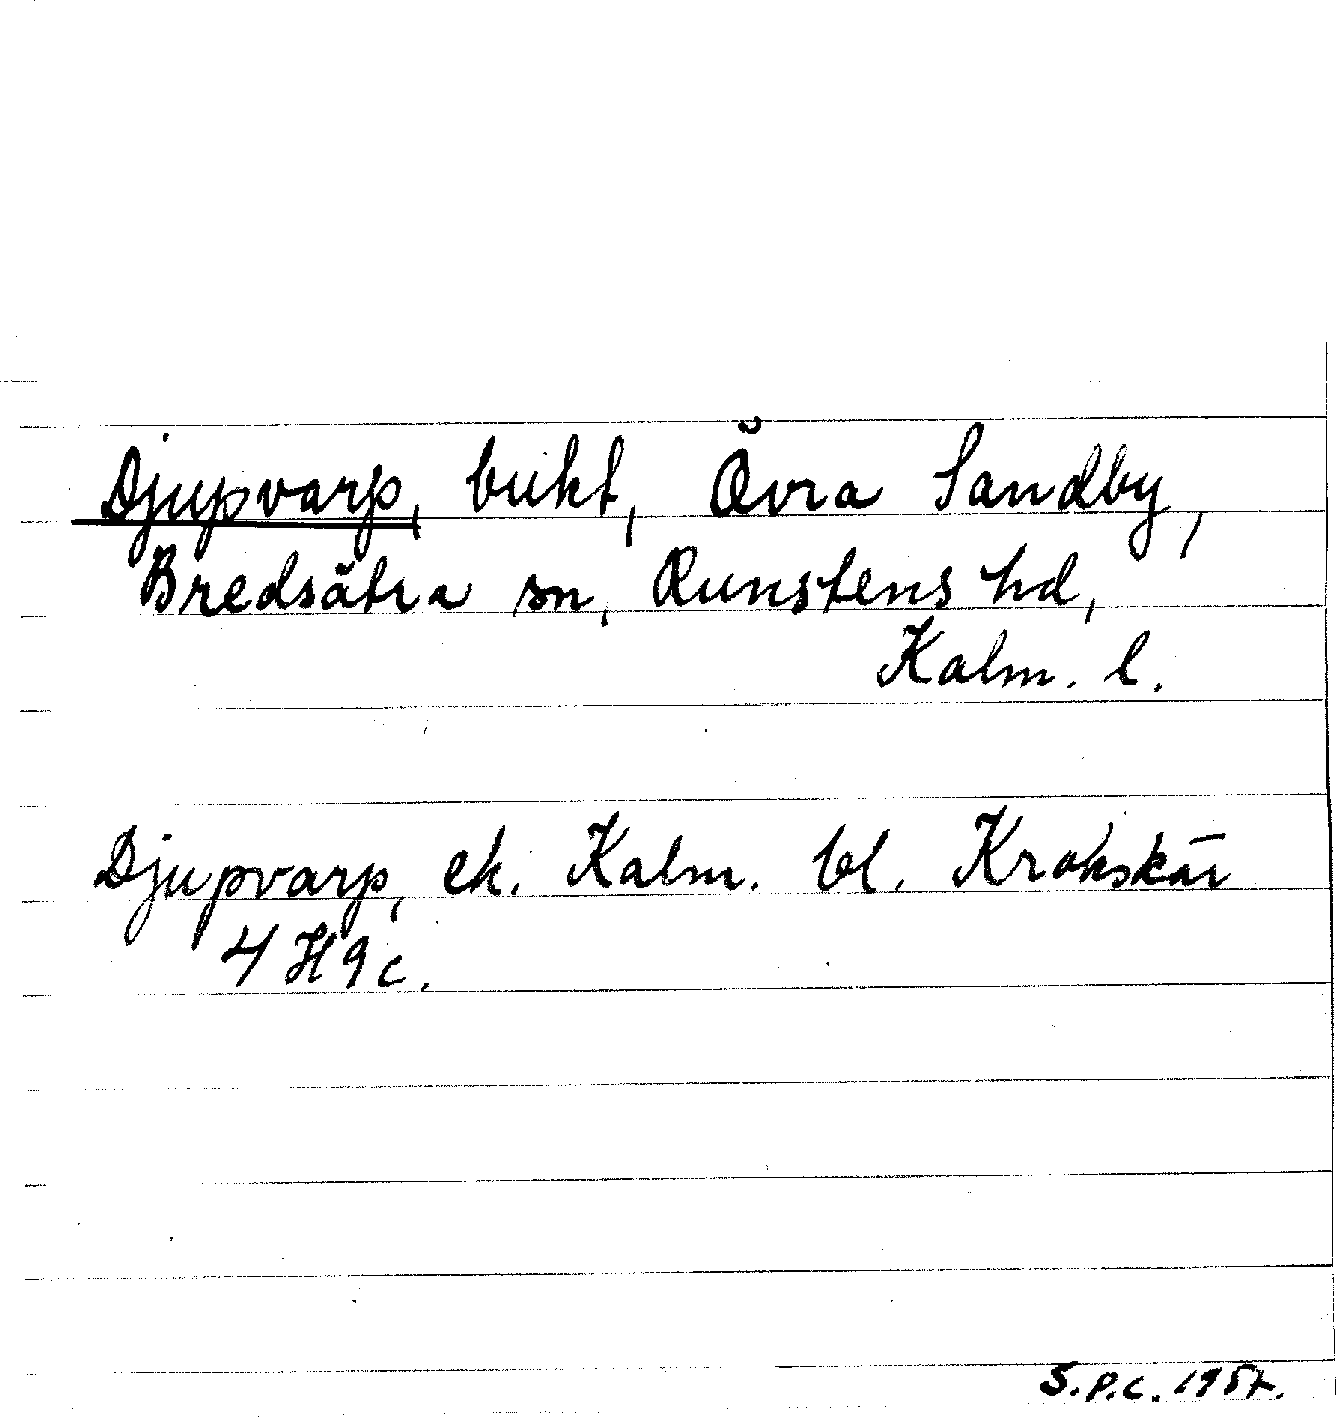 Djupvarp, bukt, Övra Sandby,
Bredsätra sn, Runstens hd,
Kalm. l.
Djupvarp, ek. Kalm. bl. Krokskär
4 H 9 c.
S.P.C. 1957.